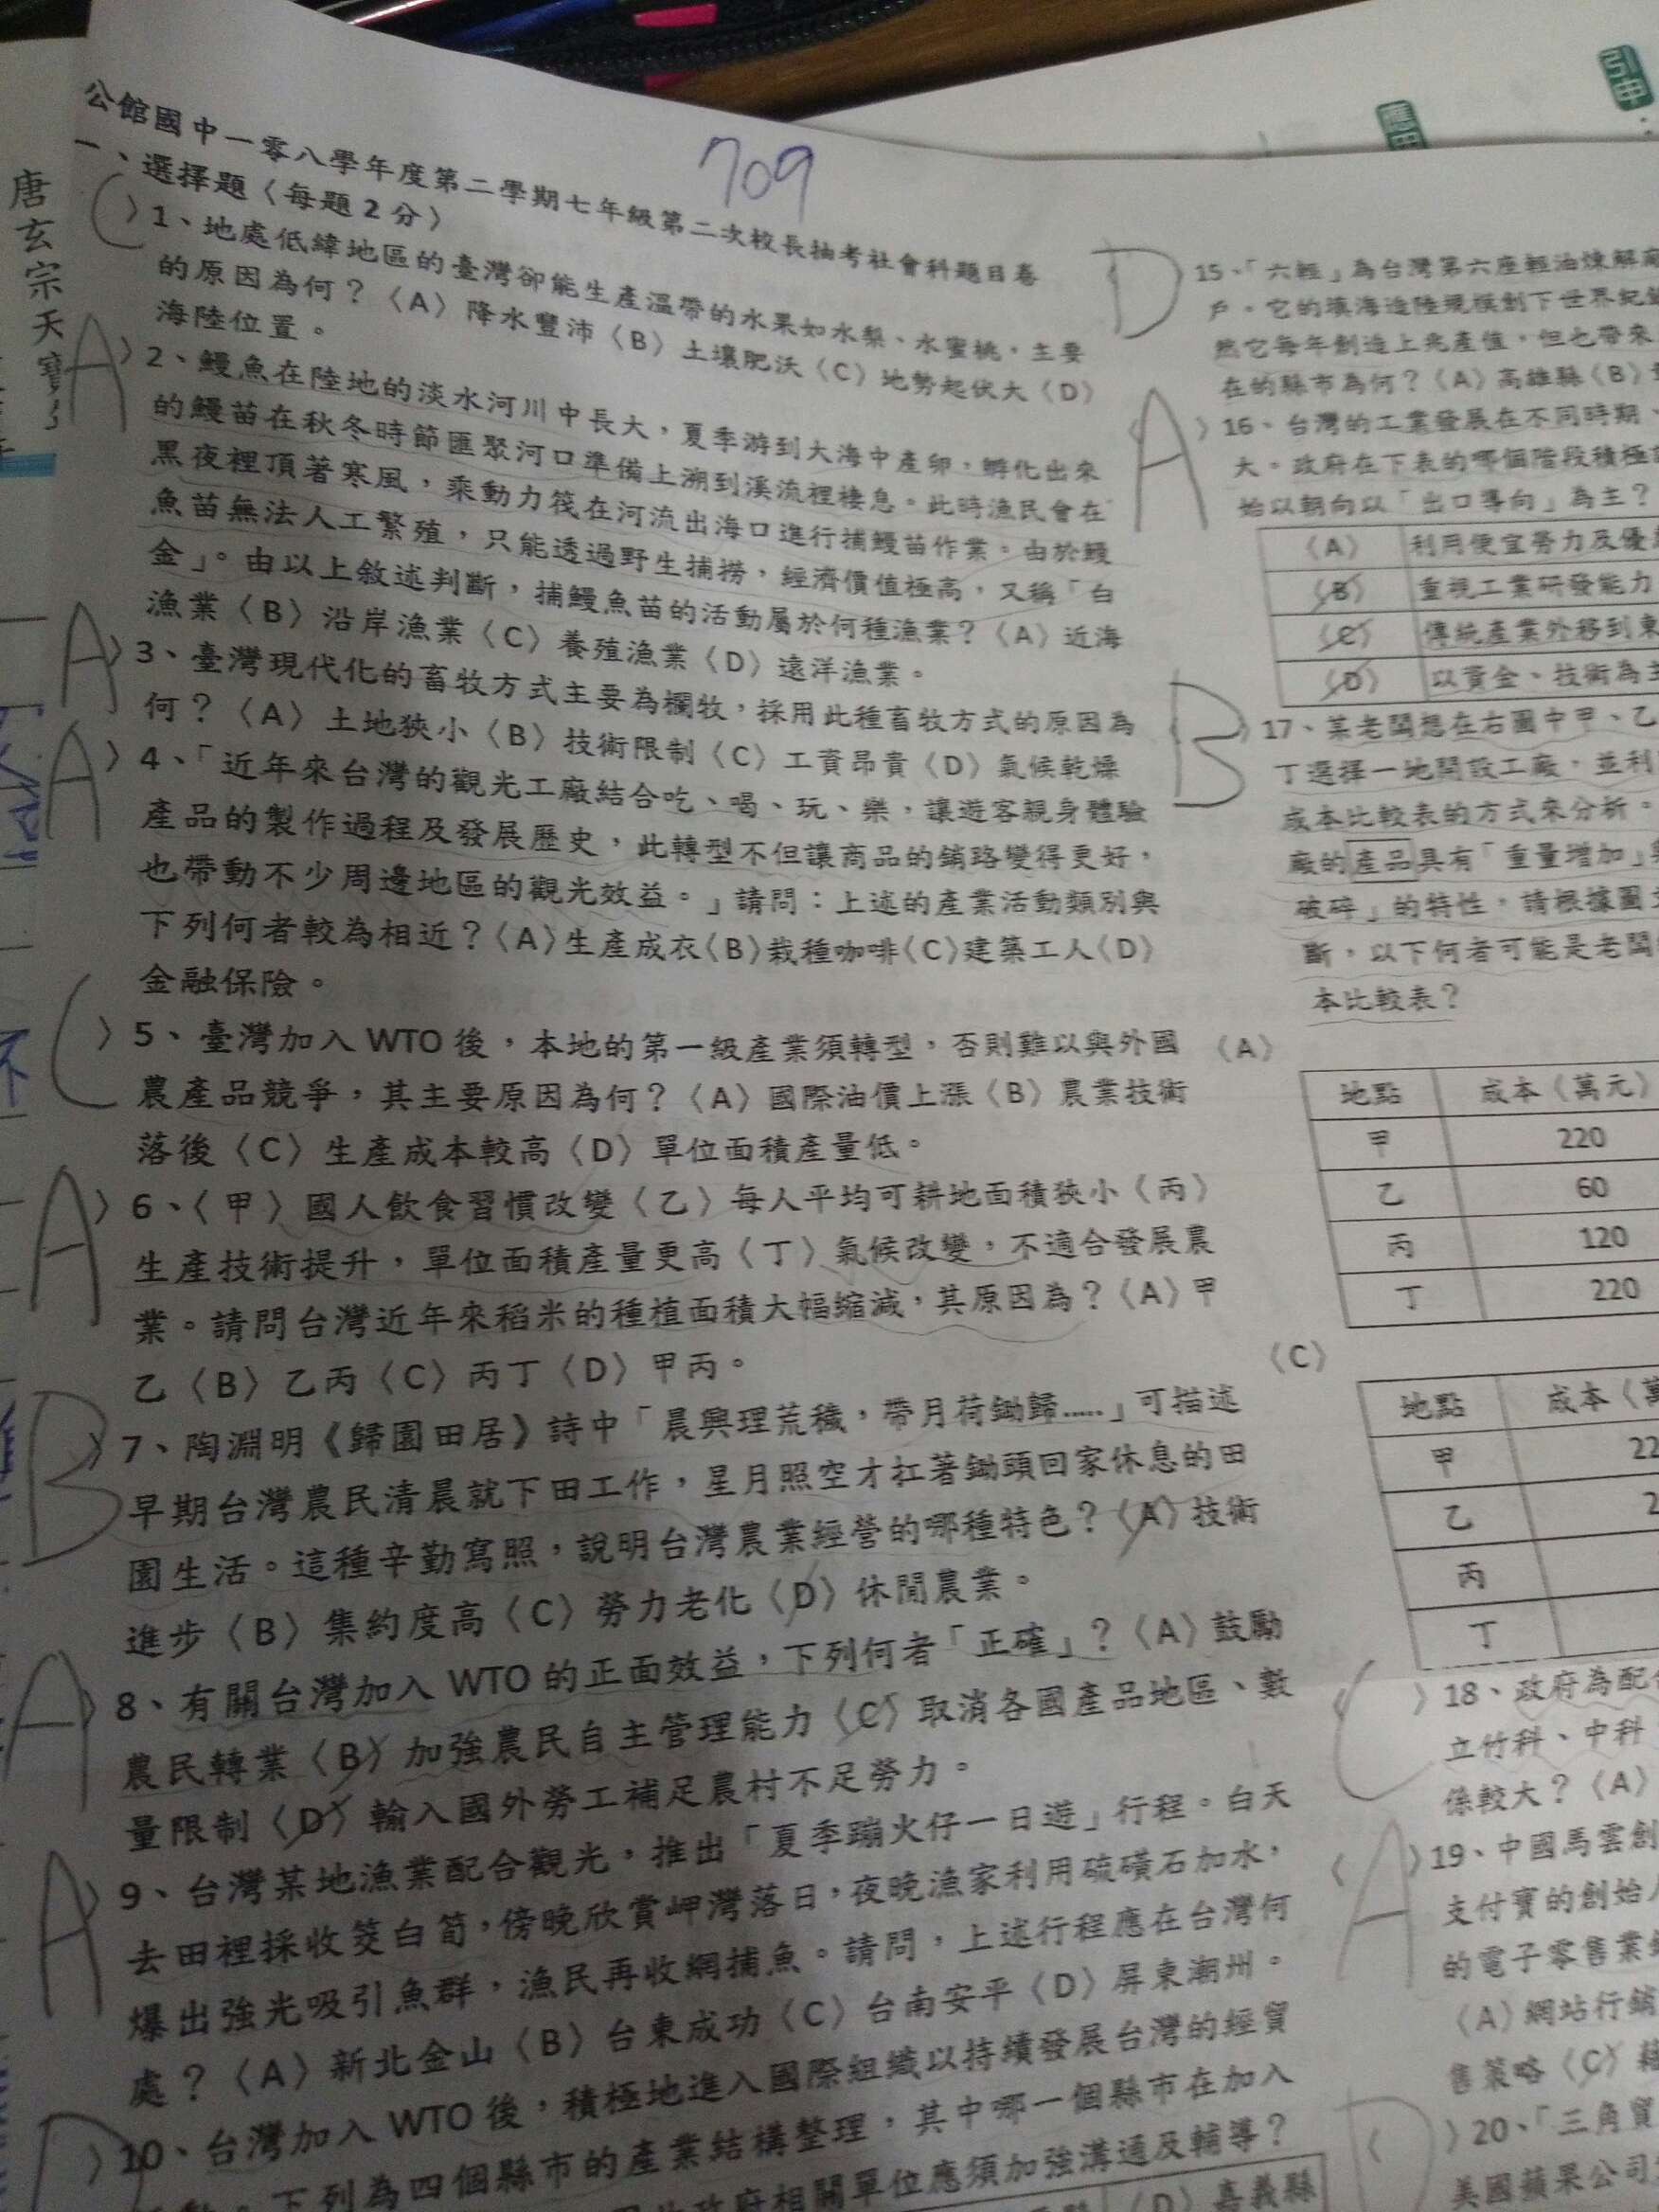 引申
應用
709
唐玄宗天寶
公館國中一零八學年度第二學期七年級第二次校長抽考社會科題目卷
一、選擇題〈每題2分〉
C 〉1、地處低緯地區的臺灣卻能生產溫帶的水果如水梨、水蜜桃，主要
的原因為何？〈A〉降水豐沛〈B〉土壤肥沃〈C〉地勢起伏大〈D〉
海陸位置。
A 〉2、鰻魚在陸地的淡水河川中長大，夏季游到大海中產卵，孵化出來
的鰻苗在秋冬時節匯聚河口準備上溯到溪流裡棲息。此時漁民會在
黑夜裡頂著寒風，乘動力筏在河流出海口進行捕鰻苗作業。由於鰻
魚苗無法人工繁殖，只能透過野生捕撈，經濟價值極高，又稱「白
金」。由以上敘述判斷，捕鰻魚苗的活動屬於何種漁業？〈A〉近海
漁業〈B〉沿岸漁業〈C〉養殖漁業〈D〉遠洋漁業。
A 〉3、臺灣現代化的畜牧方式主要為欄牧，採用此種畜牧方式的原因為
何？〈A〉土地狹小〈B〉技術限制〈C〉工資昂貴〈D〉氣候乾燥
A 〉4、「近年來台灣的觀光工廠結合吃、喝、玩、樂，讓遊客親身體驗
產品的製作過程及發展歷史，此轉型不但讓商品的銷路變得更好，
也帶動不少周邊地區的觀光效益。」請問：上述的產業活動類別與
下列何者較為相近？〈A〉生產成衣〈B〉栽種咖啡〈C〉建築工人〈D〉
金融保險。
C 〉5、臺灣加入 WTO 後，本地的第一級產業須轉型，否則難以與外國
農產品競爭，其主要原因為何？〈A〉國際油價上漲〈B〉農業技術
落後〈C〉生產成本較高〈D〉單位面積產量低。
A 〉6、〈甲〉國人飲食習慣改變〈乙〉每人平均可耕地面積狹小〈丙〉
生產技術提升，單位面積產量更高〈丁〉氣候改變，不適合發展農
業。請問台灣近年來稻米的種植面積大幅縮減，其原因為？〈A〉甲
乙〈B〉乙丙〈C〉丙丁〈D〉甲丙。
B 〉7、陶淵明《歸園田居》詩中「晨興理荒穢，帶月荷鋤歸.....」可描述
早期台灣農民清晨就下田工作，星月照空才扛著鋤頭回家休息的田
園生活。這種辛勤寫照，說明台灣農業經營的哪種特色？〈A〉技術
進步〈B〉集約度高〈C〉勞力老化〈D〉休閒農業。
A 〉8、有關台灣加入 WTO 的正面效益，下列何者「正確」？〈A〉鼓勵
農民轉業〈B〉加強農民自主管理能力〈C〉取消各國產品地區、數
量限制〈D〉輸入國外勞工補足農村不足勞力。
A 〉9、台灣某地漁業配合觀光，推出「夏季蹦火仔一日遊」行程。白天
去田裡採收筊白筍，傍晚欣賞岬灣落日，夜晚漁家利用硫磺石加水，
爆出強光吸引魚群，漁民再收網捕魚。請問，上述行程應在台灣何
處？〈A〉新北金山〈B〉台東成功〈C〉台南安平〈D〉屏東潮州。
D 〉10、台灣加入 WTO 後，積極地進入國際組織以持續發展台灣的經貿
下列為四個縣市的產業結構整理，其中哪一個縣市在加入
政府相關單位應須加強溝通及輔導？
〈D〉嘉義縣
D 15、「六輕」為台灣第六座輕油煉解廠
戶。它的填海造陸規模創下世界紀錄
然它每年創造上兆產值，但也帶來
在的縣市為何？〈A〉高雄縣〈B〉
〈A 〉16、台灣的工業發展在不同時期、
大。政府在下表的哪個階段積極
始以朝向以「出口導向」為主？
〈A〉 利用便宜勞力及優
〈B〉 重視工業研發能力
〈C〉 傳統產業外移到東
〈D〉 以資金、技術為主
B 〉17、某老闆想在右圖中甲、乙
丁選擇一地開設工廠，並利
成本比較表的方式來分析。
廠的產品具有「重量增加」
破碎」的特性，請根據圖
斷，以下何者可能是老闆
本比較表？
〈A〉
地點 成本〈萬元〉
甲 220
乙 60
丙 120
丁 220
〈C〉
地點 成本〈萬
甲 22
乙 2
丙
丁
〈C 〉18、政府為配合
立竹科、中科
係較大？〈A〉
〈A 〉19、中國馬雲創
支付寶的創始人
的電子零售業
〈A〉網站行銷
售策略〈C〉
〈D 〉20、「三角貿
美國蘋果公司